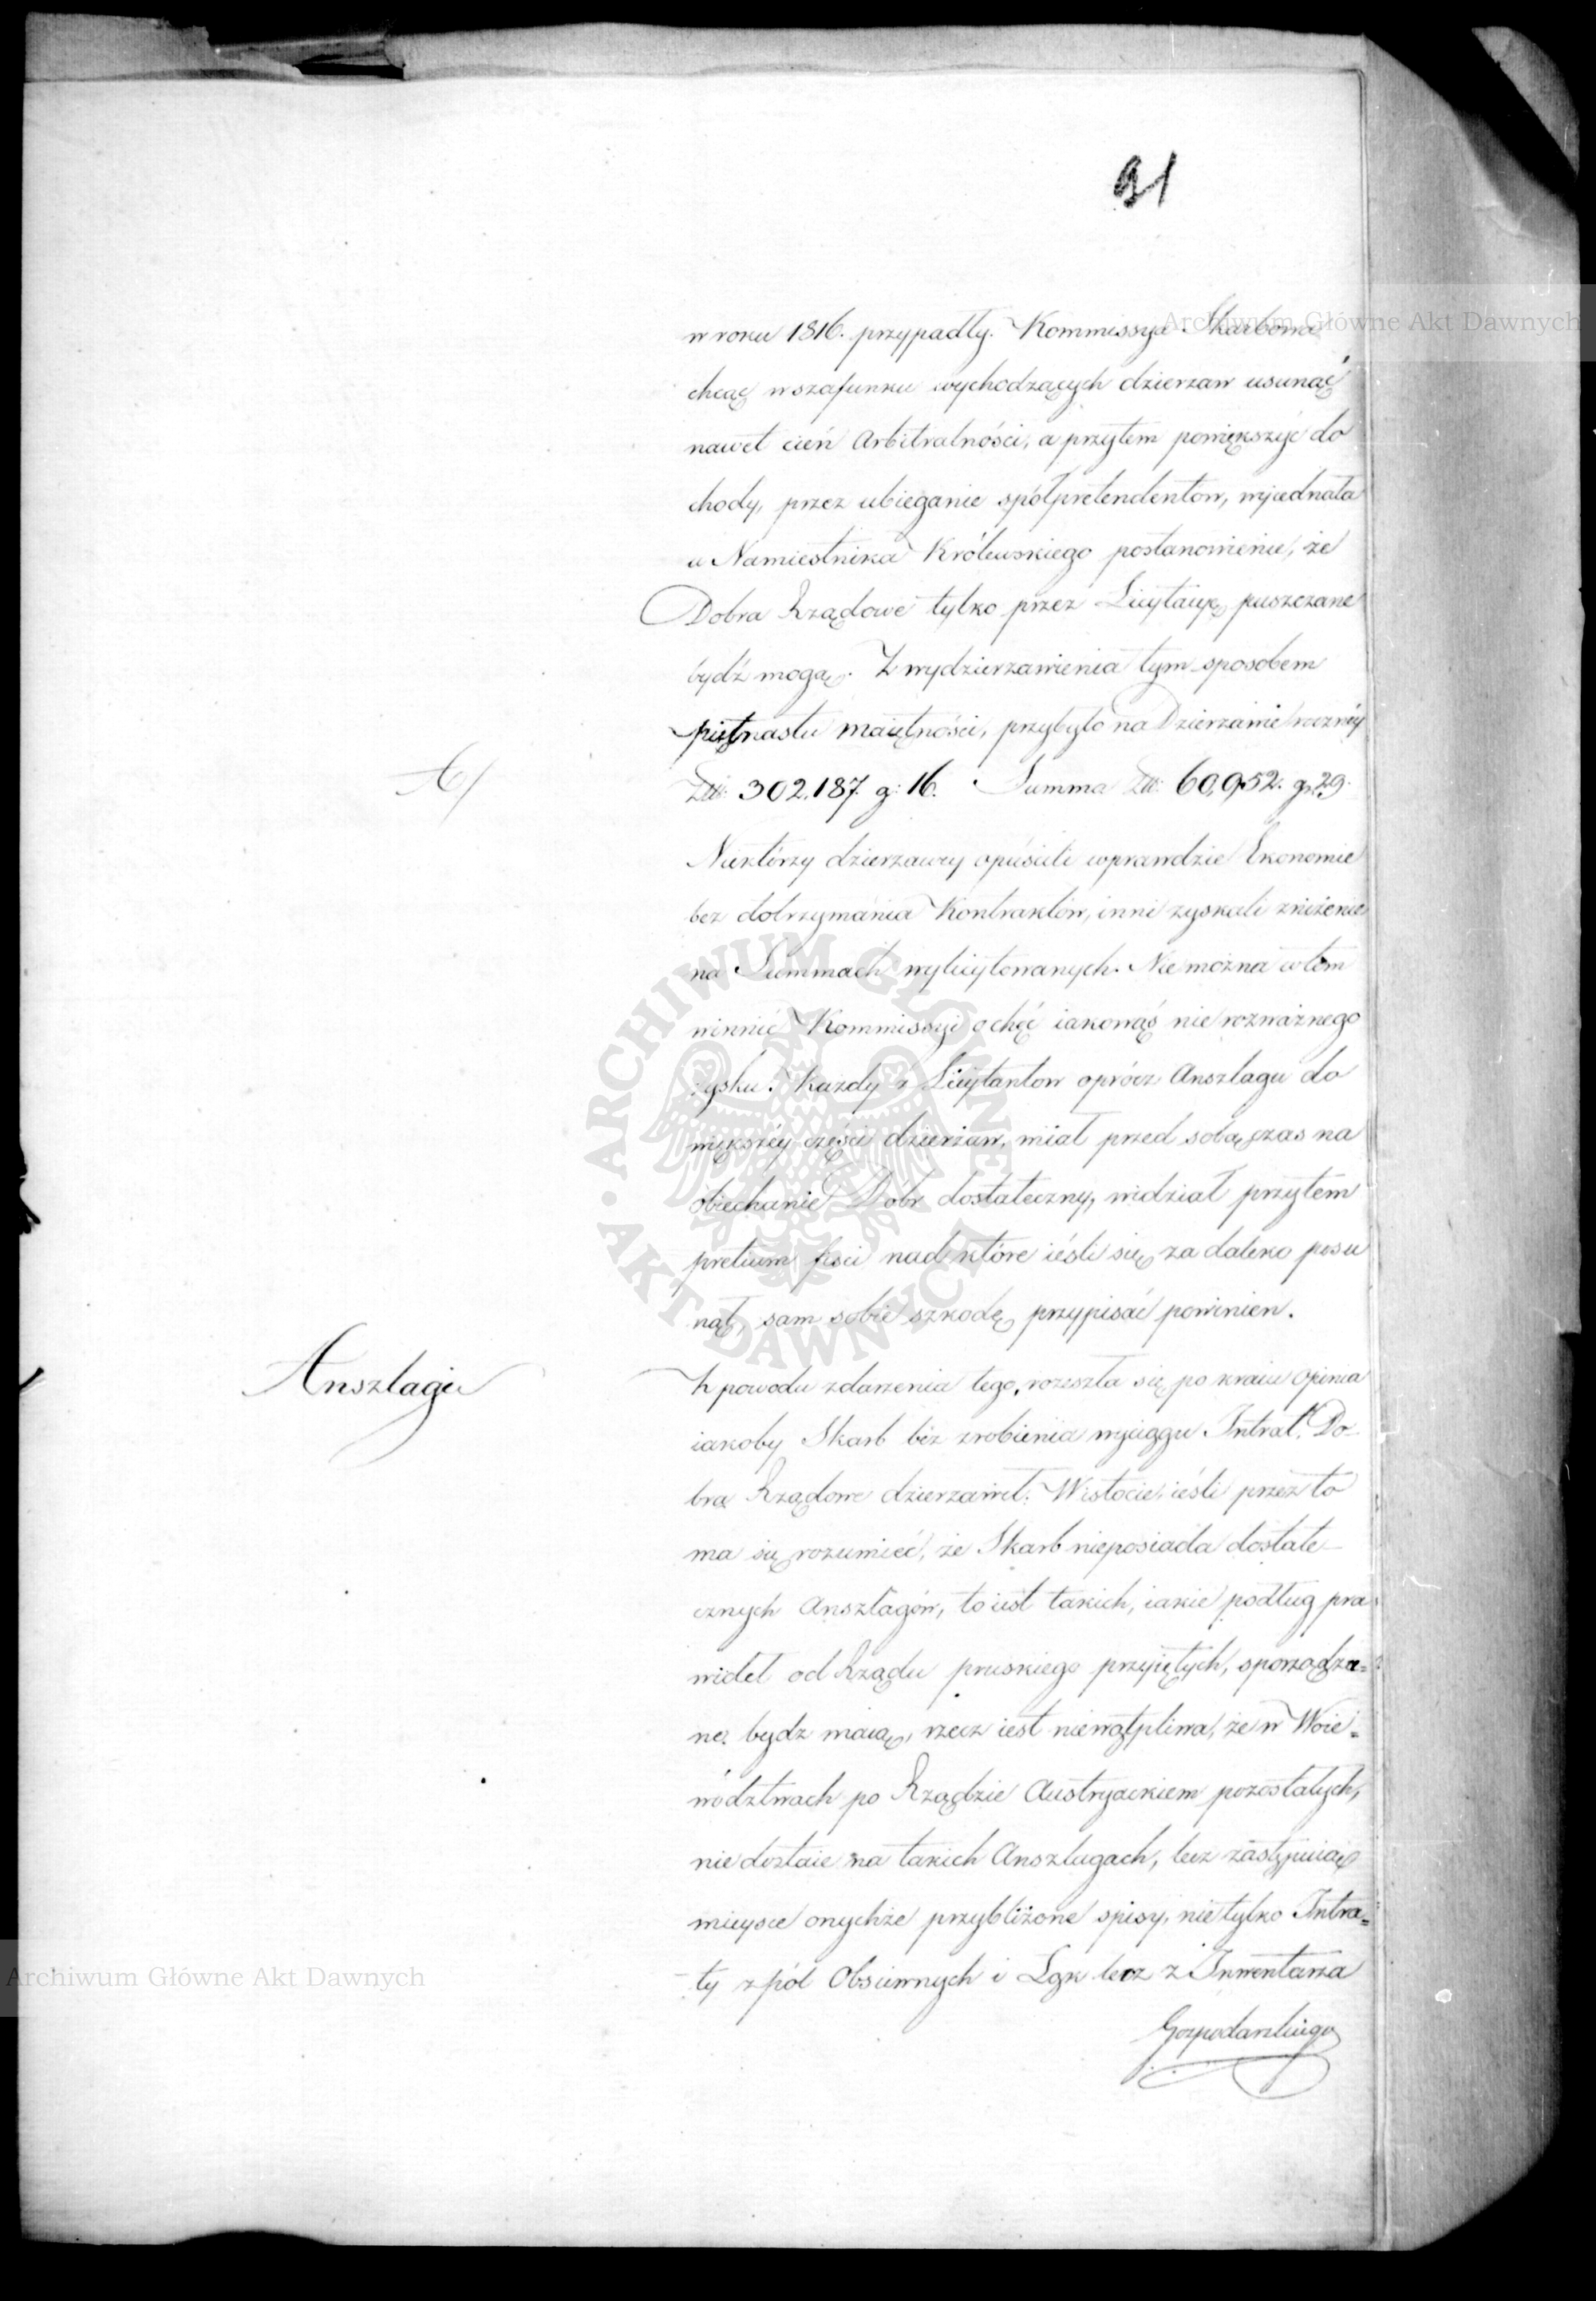 91
w roku 1816. przypadły. Kommissya Skarbowa
chcąc w szafunku wychodzących dzierzaw usunąć
nawet cień Arbitralności, a przytem powiększyć do
chody, przez ubieganie spółpretendentow, wyjednała
u Namiestnika Królewskiego postanowienie, że
Dobra Rządowe tylko przez Licytacyę puszczane
bydź mogą. Z wydzierzawienia tym sposobem
piętnastu maiętności, przybyło na Dzierzawie roczney
A/
Złł: 302,187. g: 16. Summa Złł: 60,952. gr. 29.
Niektórzy dzierzawcy opuścili wprawdzie Ekonomie
bez dotrzymania Kontraktów, inni zyskali zniżenie
na Summach wylicytowanych. Nie można w tem
winnić Kommissyi o chęć iakowąś nie rozważnego
zysku. Każdy z Licytantow oprócz Anszlagu do
większéy części dzierżaw, miał przed sobą czas na
obiechanie Dóbr dostateczny, widział przytém
pretium fisci nad które iéśli się za daleko posu
nął, sam sobie szkodę przypisać powinien.
Anszlagi
Z powodu zdarzenia tego, rozeszła się po kraiu opinia
iakoby Skarb bez zrobienia wyciągu Intrat, Do-
bra Rządowe dzierzawił. W istocie, iéśli przez to
ma się rozumieć, że Skarb nieposiada dostate-
cznych Anszlagów, to iest takich, iakie podług pra
wideł od Rządu pruskiego przyiętych, sporządza=
ne bydz maią, rzecz iest niewątpliwa, że w Woie=
wództwach po Rządzie Austryackiem pozostałych,
nie dostaie na takich Anszlagach, lecz zastępuią
mieysce onychże przybliżone spisy, nie tylko Intra=
ty z pól Obsiewnych i Łąk lecz z Inwentarza
Gospodarskiego
Archiwum Główne Akt Dawnych
Archiwum Główne Akt Dawnych
ARCHIWUM GŁÓWNE • AKT DAWNYCH •